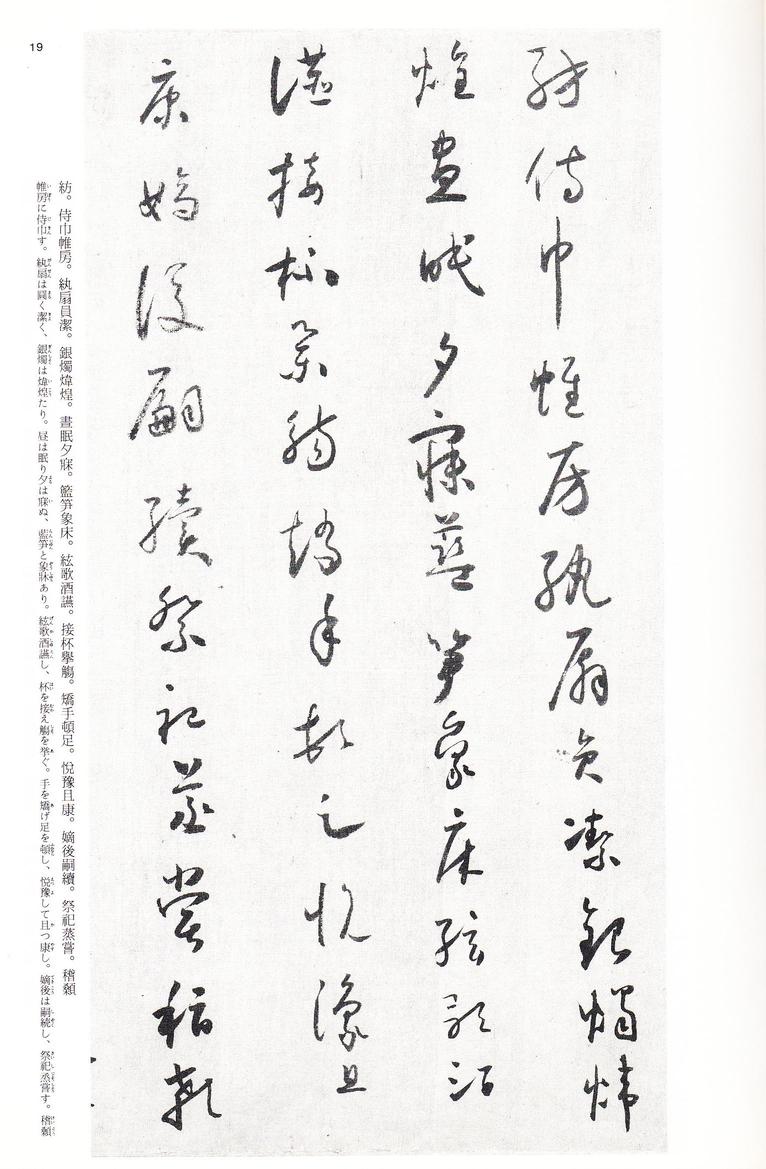 19
紡侍巾帷房紈扇員潔銀燭煒
煌晝眠夕寐藍笋象床弦歌酒
讌接杯舉觴矯手頓足悅豫且
康嫡後嗣續祭祀蒸嘗稽顙
紡。侍巾帷房。紈扇員潔。銀燭煒煌。晝眠夕寐。籃笋象床。絃歌酒讌。接杯擧觴。矯手頓足。悅豫且康。嫡後嗣續。祭祀蒸嘗。稽顙
帷房に侍巾す。紈扇は圓く潔く、銀燭は煒煌たり。昼は眠り夕は寐ぬ、藍笋と象牀あり。絃歌酒讌し、杯を接え觴を挙ぐ。手を矯げ足を頓し、悦豫して且つ康し。嫡後は嗣続し、祭祀烝嘗す。稽顙